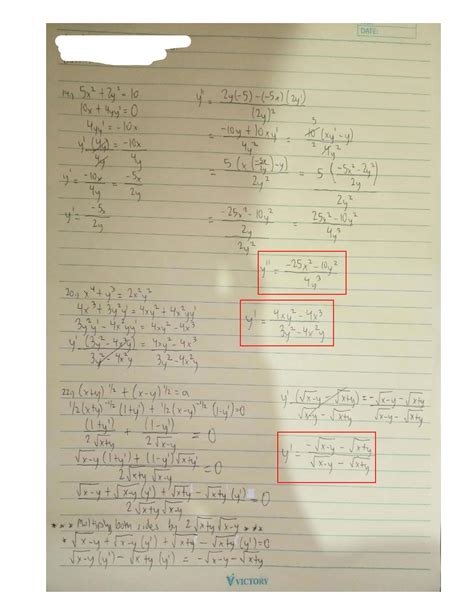 DATE:
19.) 5x² + 2y² = 10
10x + 4yy' = 0
4yy' = -10x
y' (4y)/4y = -10x/4y
y' = -10x/4y = -5x/2y
y' = -5x/2y
y'' = 2y(-5) - (-5x)(2y') / (2y)²
= -10y + 10xy' / 4y² = 10 (xy' - y) / 4y²
= 5 (x (-5x/2y) - y) / 2y² = 5 (-5x² - 2y² / 2y) / 2y²
= -25x² - 10y² / 2y / 2y² = 25x² - 10y² / 4y³
y'' = -25x² - 10y² / 4y³
20.) x⁴ + y³ = 2x²y²
4x³ + 3y²y' = 4xy² + 4x²yy'
3y²y' - 4x²yy' = 4xy² - 4x³
y' (3y² - 4x²y) / 3y² - 4x²y = 4xy² - 4x³ / 3y² - 4x²y
y' = 4xy² - 4x³ / 3y² - 4x²y
22.) (x+y)^1/2 + (x-y)^1/2 = a
1/2 (x+y)^-1/2 (1+y') + 1/2 (x-y)^-1/2 (1-y') = 0
(1+y') / 2√x+y + (1-y') / 2√x-y = 0
√x-y (1+y') + (1-y') √x+y / 2√x+y √x-y = 0
√x-y + √x-y (y') + √x+y - √x+y (y') / 2√x+y √x-y = 0
*** Multiply both sides by 2√x+y √x-y ***
* √x-y + √x-y (y') + √x+y - √x+y (y') = 0
√x-y (y') - √x+y (y') = -√x-y - √x+y
y' (√x-y - √x+y) / √x-y - √x+y = -√x-y - √x+y / √x-y - √x+y
y' = -√x-y - √x+y / √x-y - √x+y
VICTORY